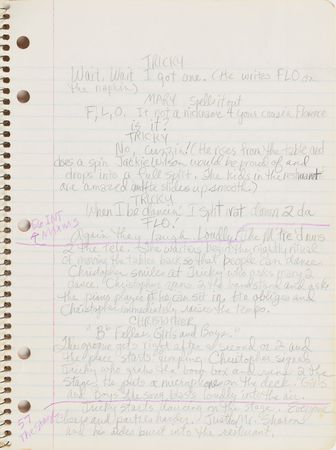 TRICKY
Wait. Wait I got one. (He writes FLO on
the napkin)
MARY spells it out
F, L, O. Is not a nickname 4 your cousin Florence
is it?
TRICKY
No, Cuezin! (He rises from the table and
does a spin Jackie Wilson would be proud of and
drops into a full split. The kids in the restraunt
are amazed and he slides up smooth.)
TRICKY
When I be dancin' I split rat down 2 da
FLO!
56 INT
MAXIMS
Again they laugh loudly. The M'tre'd
2 the tele. The waiters begin the nightly ritual
of moving the tables back so that people can dance.
Christopher smiles at Tricky who asks Mary 2
dance. Christopher runs 2 the bandstand and asks
the piano player if he can sit in. He obliges and
Christopher immediately raises the tempo.
CHRISTOPHER
"B" Fellers Girls and Boys."
The groove gets right after a second or 2 and
the place starts jumping. Christopher signals
Tricky who grabs the boom box and runs 2 the
stage. He puts a microphone on the deck. "Girls
and Boys" the song blasts loudly into the air.
57
Tricky starts dancing on the stage. Everyone
and parties harder. Just Mr. Sharon
and his aides burst into the resturant.